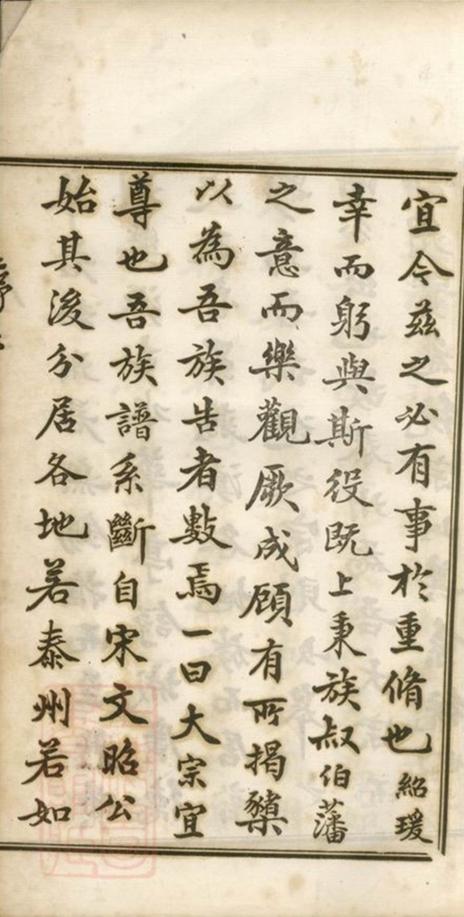 宜今茲之必有事於重脩也紹瑗
幸而躬與斯役既上秉族叔伯藩
之意而樂觀厥成顧有所揭櫫
以為吾族告者數焉一曰大宗宜
尊也吾族譜系斷自宋文昭公
始其後分居各地若泰州若如